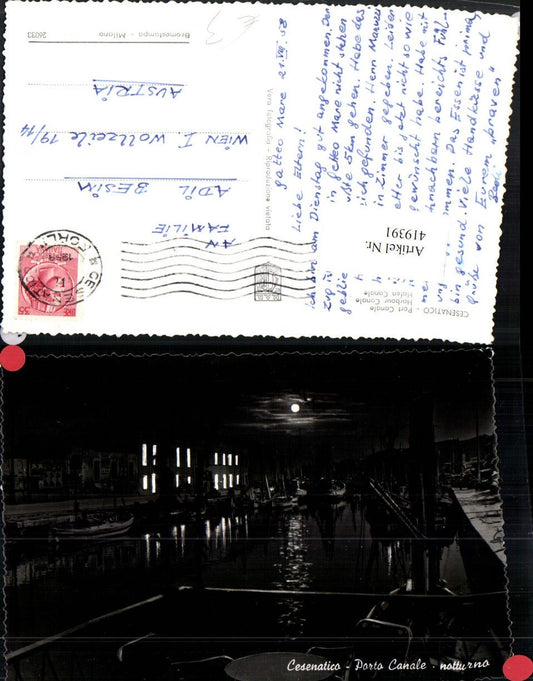 26033
Bromostampa - Milano
Vera fotografia - Riproduzione vietata
€3
AN
FAMILIE
ADIL
BESIM
WIEN I Wollzeile 19/14
AUSTRIA
CESENATICO
FORLI
1958
Gatteo Mare 21. VII. 58
Liebe Eltern!
Ich bin am Dienstag gut angekommen. Den
in Gatteo Mare nicht stehen
gehen. Habe das
Herrn
in Zimmer gegeben. Leider
Wetter bis jetzt nicht so wie
gewünscht habe. Habe mit
nachbarn bereits
Das Essen ist prima,
bin gesund. Viele Handküsse und
Grüße von Eurem "braven"
Artikel Nr.
419391
CESENATICO - Port Canale
Harbour Canale
Hafen Canale
Cesenatico - Porto Canale - notturno